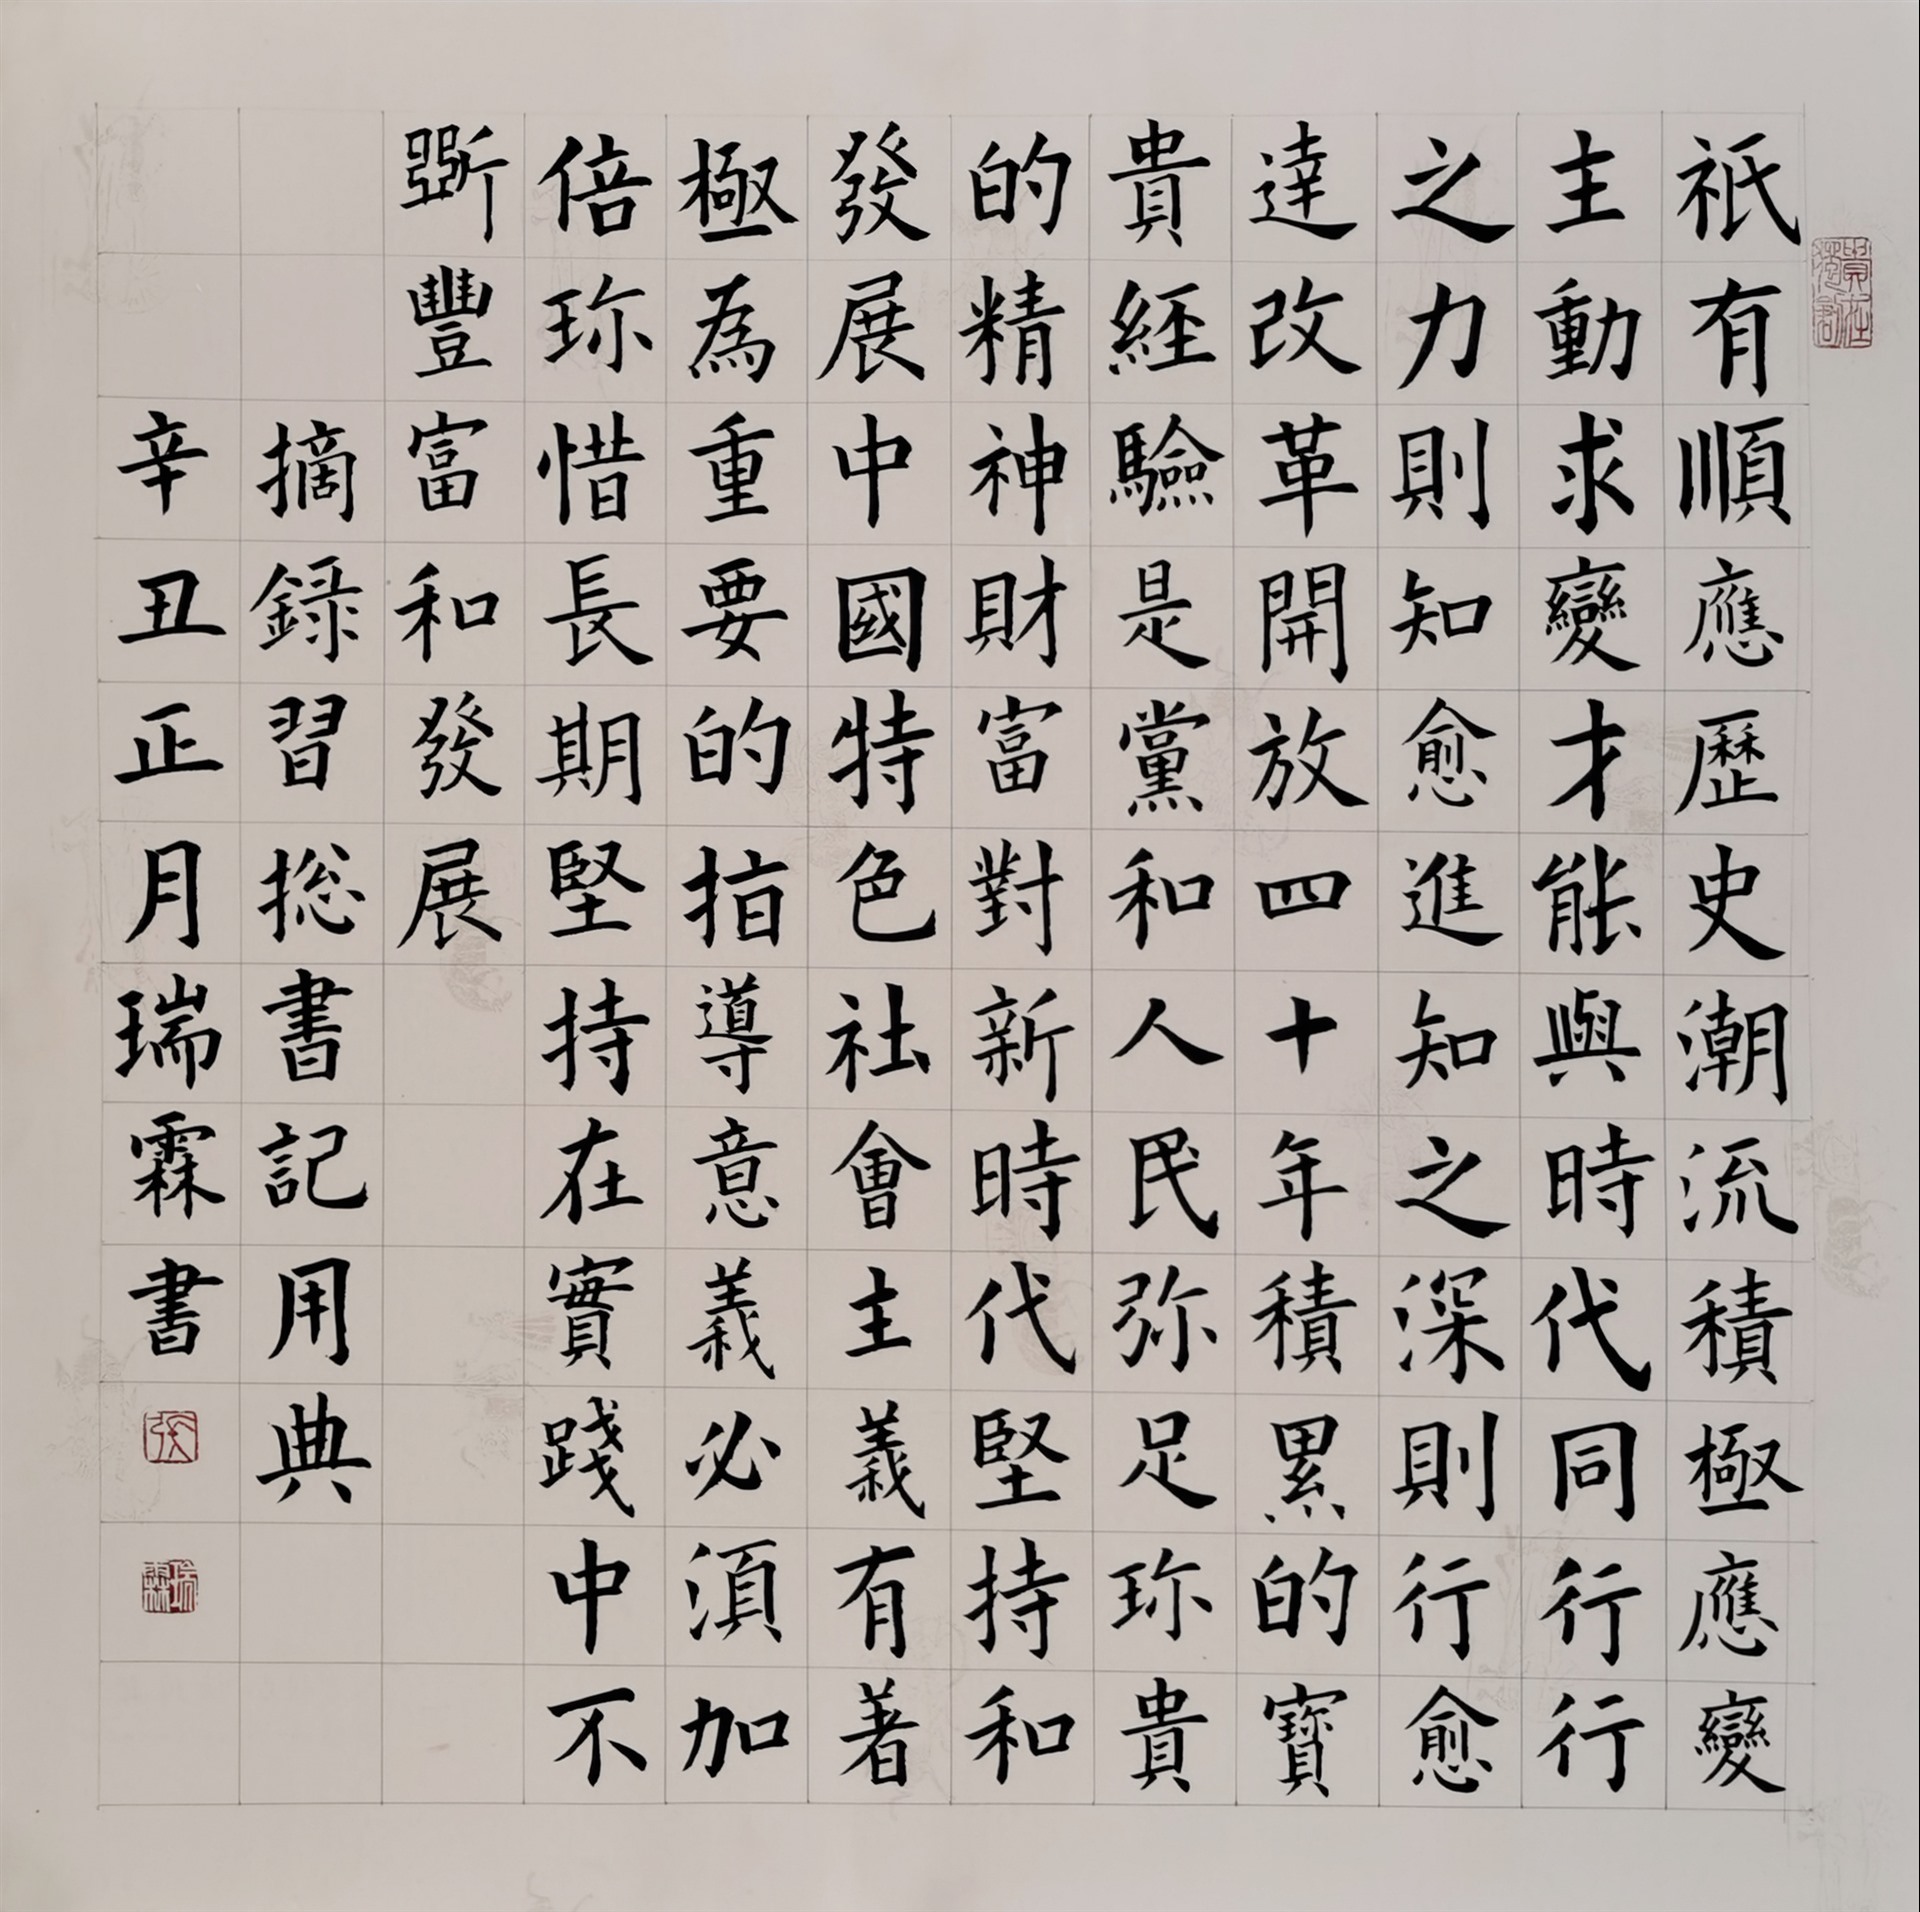 祇有順應歷史潮流積極應變
主動求變才能與時代同行行
之力則知愈進知之深則行愈
達改革開放四十年積累的寳
貴經驗是黨和人民弥足珎貴
的精神財富對新時代堅持和
發展中國特色社會主義有著
極為重要的指導意義必須加
倍珎惜長期堅持在實踐中不
斷豐富和發展
摘録習捴書記用典
辛丑正月瑞霖書
张
瑞霖